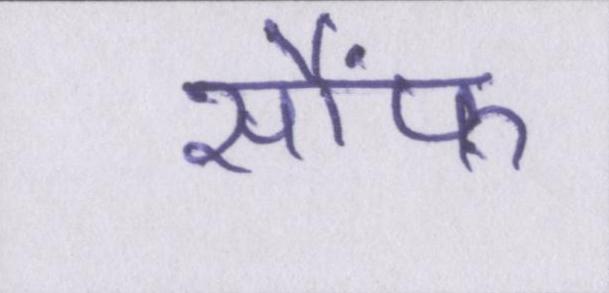 सौंफ